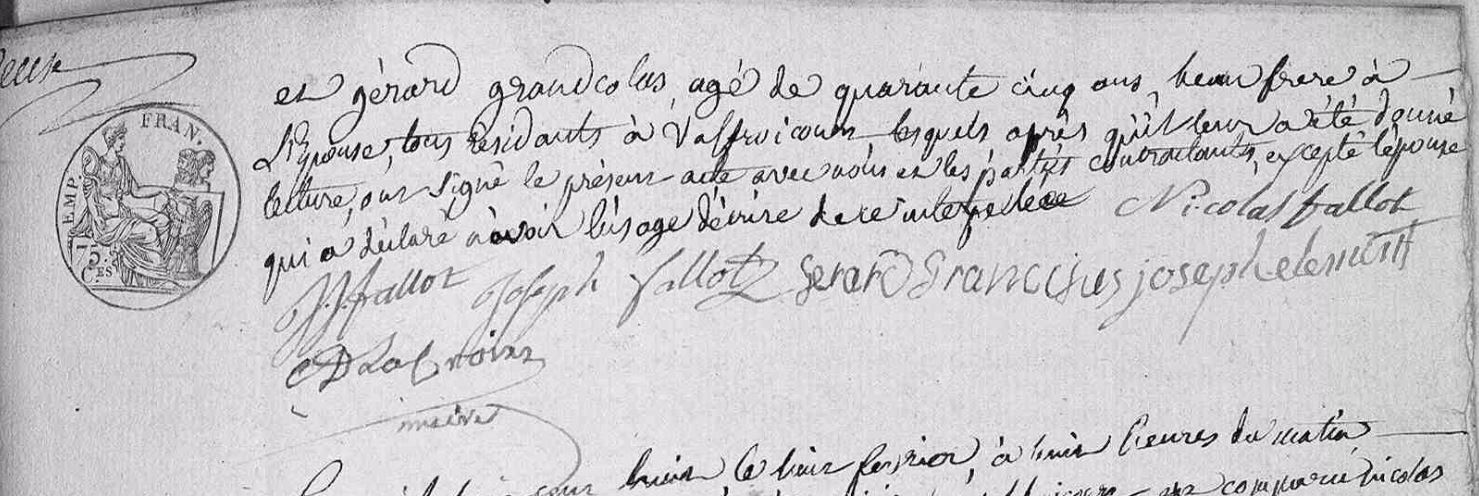 FRAN.
EMP.
75.
C.ES
et gérard grandcolas agé de quarante cinq ans, beau frere à
L'Epouse, tous résidants à Valfroicourt, lesquels après qu'il leur a été donné
lecture, ont signé le présent acte avec nous et les parties contractantes, excepté l'épouse
qui a déclaré n'avoir l'usage d'écrire de ce interpellée Nicolas fallot
J J fallot Joseph fallot Gerard Francisus joseph element
D LaCroix
maire
huit le huit fevrier, à huit heures du matin
comparu nicolas